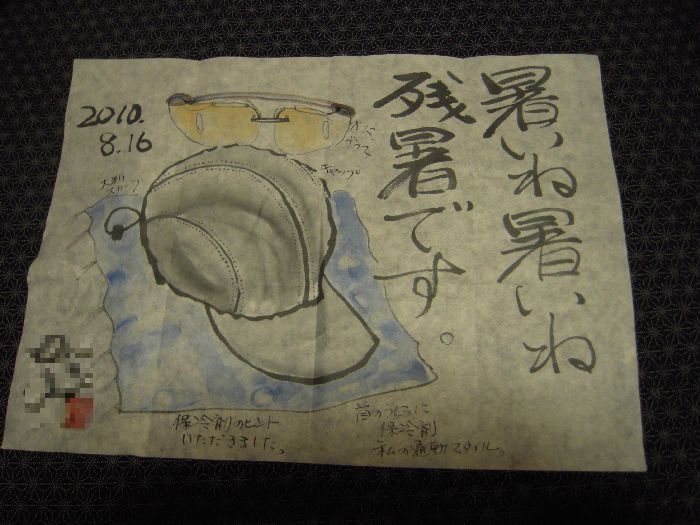 暑いね暑いね
残暑です。
2010.
8.16
キャップ
大判
スカーフ
保冷剤のヒント
いただきました。
首のうしろに
保冷剤
私の通勤スタイル。